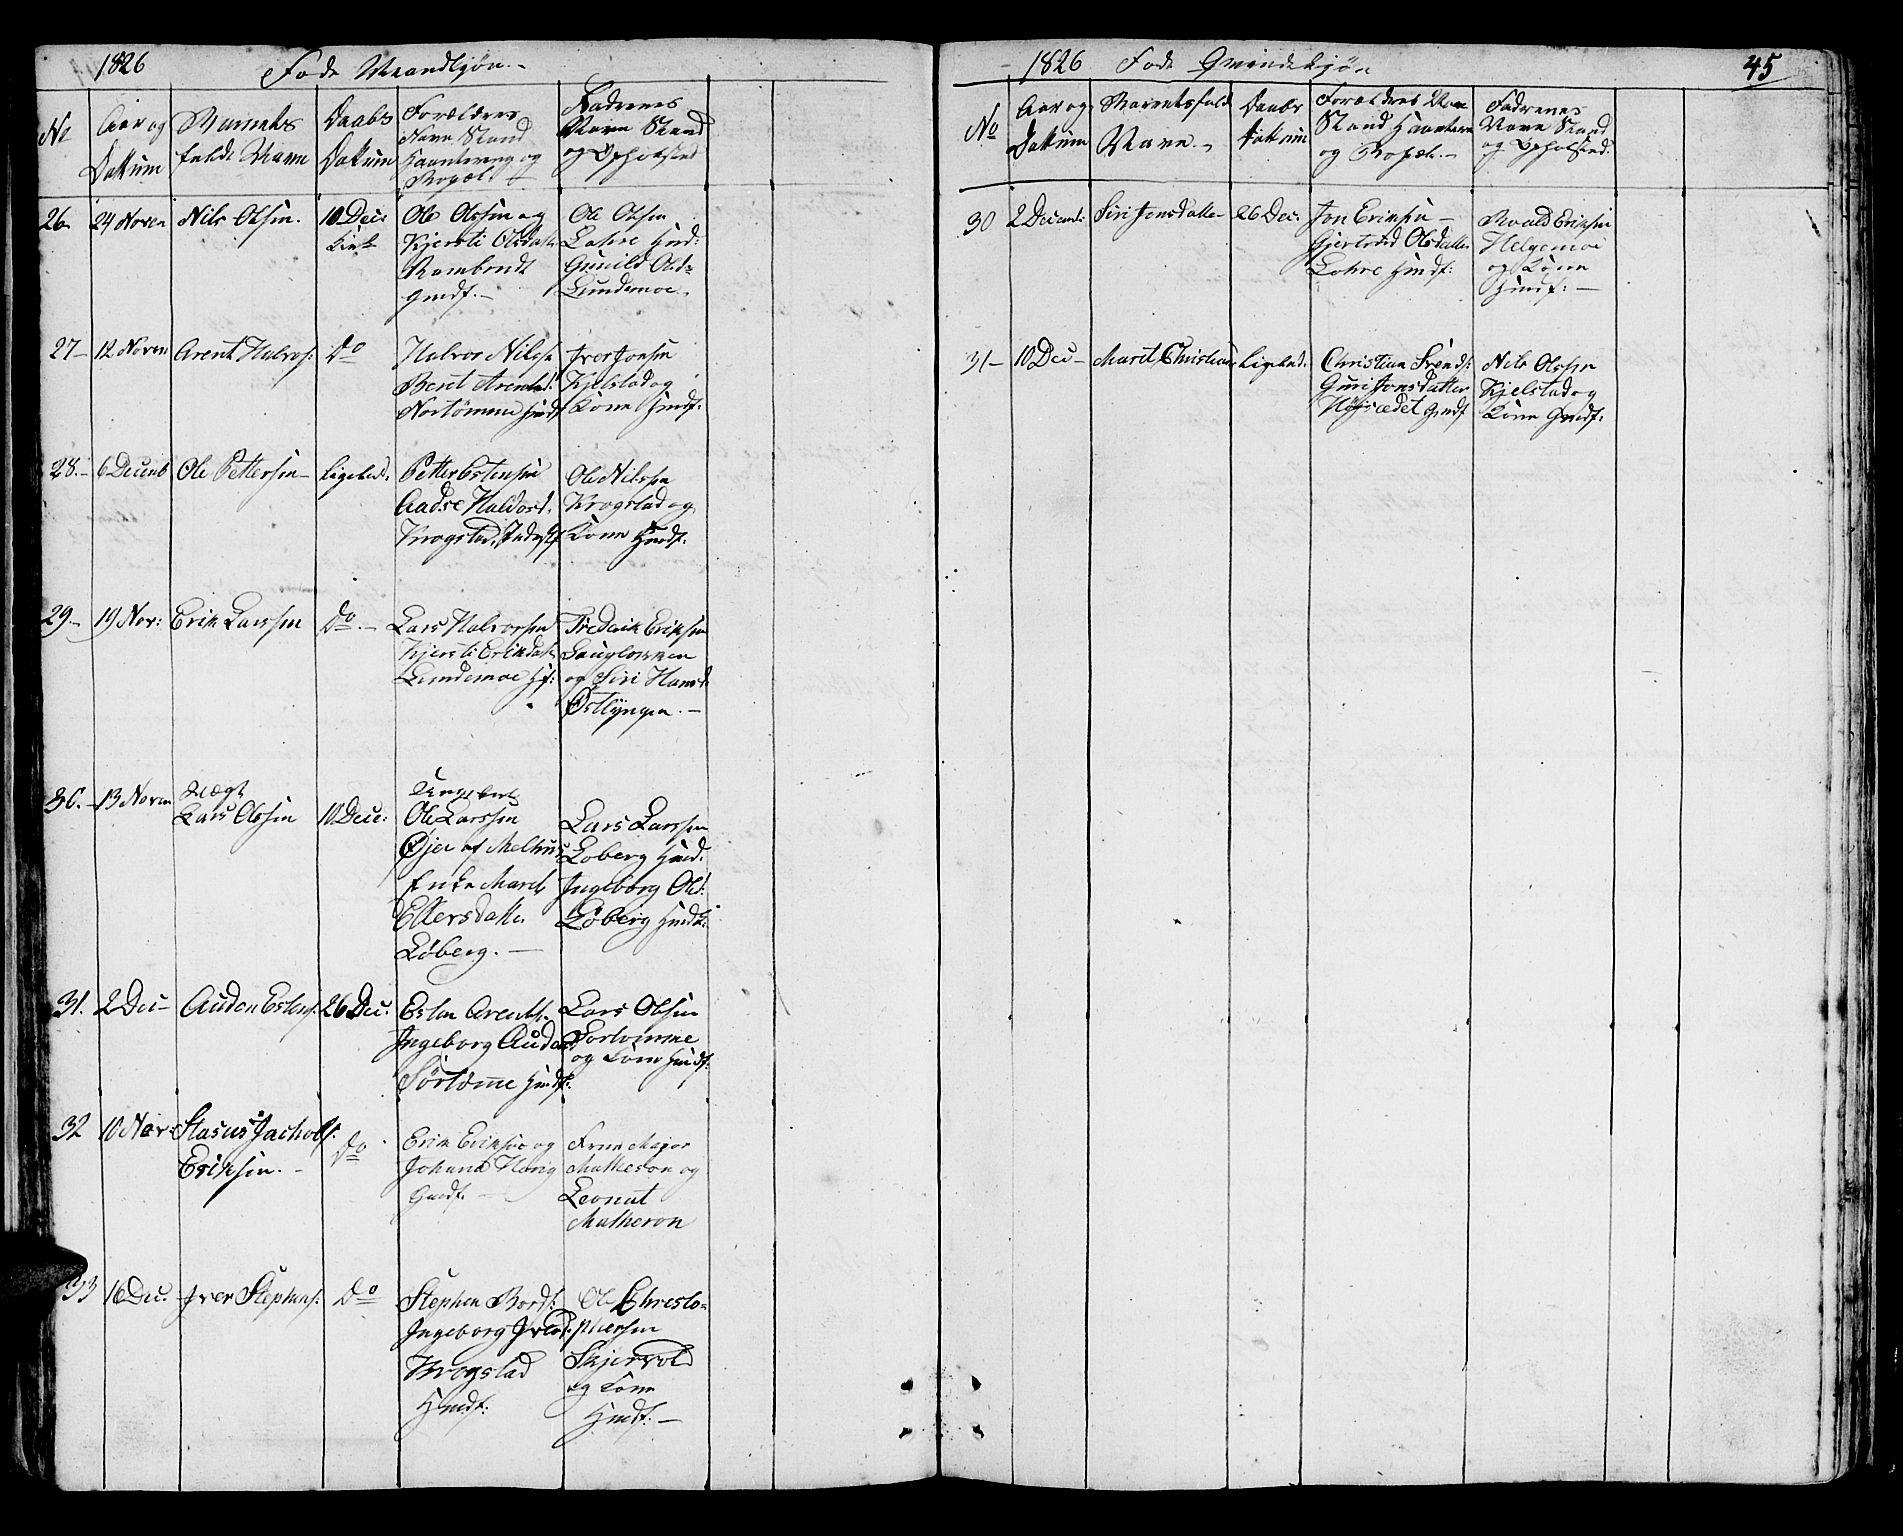 1826
Føde Mandkjøn.-
No
Aar og
Dattum
Barnets
fulde Navn
Daabs
Dattum
Forældres
Navn Stand
Haantering og
Bopæl
Fadrenes
Navn Stand
og Opholsted
26
24 Novem
Nils Olsen.
10 Dec:
Kirk
Ole Olssen og
Kjersti Olsdat
Gmdf.-
Ole Olsen
Lohre Hmd:
Gunild Olsd-
Lundemoe.
27-
12 Novem
Arent Halvors:
Do
Halvor Nilsen
Berit Arentsd:
Nortømme Hmdf
Iver Jonsen
Kjelstad og
Kone Hmdf:
28.-
6 Decemb
Ole Pettersen-
ligeled:
Petter Estensen
Aadse Haldosd.
Krogstad, Inderstf
Ole Nilssen
Krogstad og
Kone Hmdf:
29.-
19 Nov:
Erik Larssen
Do.-
Lars Halvorsen
Kjersti Eriksdat
Lundemoe Hf:
Frederik Eriksen
og Siri Hansd.
Østlyngen.-
30.-
13 Novem
Uægt
Lars Olssen
10 Dec:
Ungekarl
Ole Larssen
Øjer af Melhus
Enke Marit
Ellersdatter
Løberg.-
Lars Larssen
Loberg Hmd.
Ingeborg Olsd:
Løberg Hmdf:
31.
2 Dec-
Auden Estens:
26 Dec:
Esten Arentss.
Ingeborg Audensd
Sørtømme Hmdf:
Lars Olsen
Sortomme
og Kone Hmdf:
32
10 Nov:
Stasius Jachobs:
Eriksen.-
Do
Erik Eriksen og
Johana Hørig
Gmdf.-
Frue Major
Matheson og
Leonat
Matheson
33
16 Dec.
Iver Stephens:
Do
Stephen Bords:
Ingeborg Iversd:
Krogstad
Hmdf:
Ole Christo-
phersen
Skjervold
og Kone
Hmdf:-
1826 Føde Qvindekjøn
45
No
Aar og
Dattum
Barnets fulde
Navn.-
Daabs
Dattum
Forældres Navn
Stand Haantern
og Bopæl.-
Fadrenes
Navn Stand
og Opholsted.
30
2 Decemb:
Siri Jonsdatter
26 Dec:
Jon Eriksen-
Gjertrud Olsdatter
Lohre Hmdf:
Roald Eriksen
Helgemoe
og Kone
Hmdf:-
31-
10 Dec-
Marit Christians
ligeled:
Christian Svends:
Guri Jonsdatter
Højsædet Gmdf
Nils Olssen
Kjelstad og
Kone Gmdf: